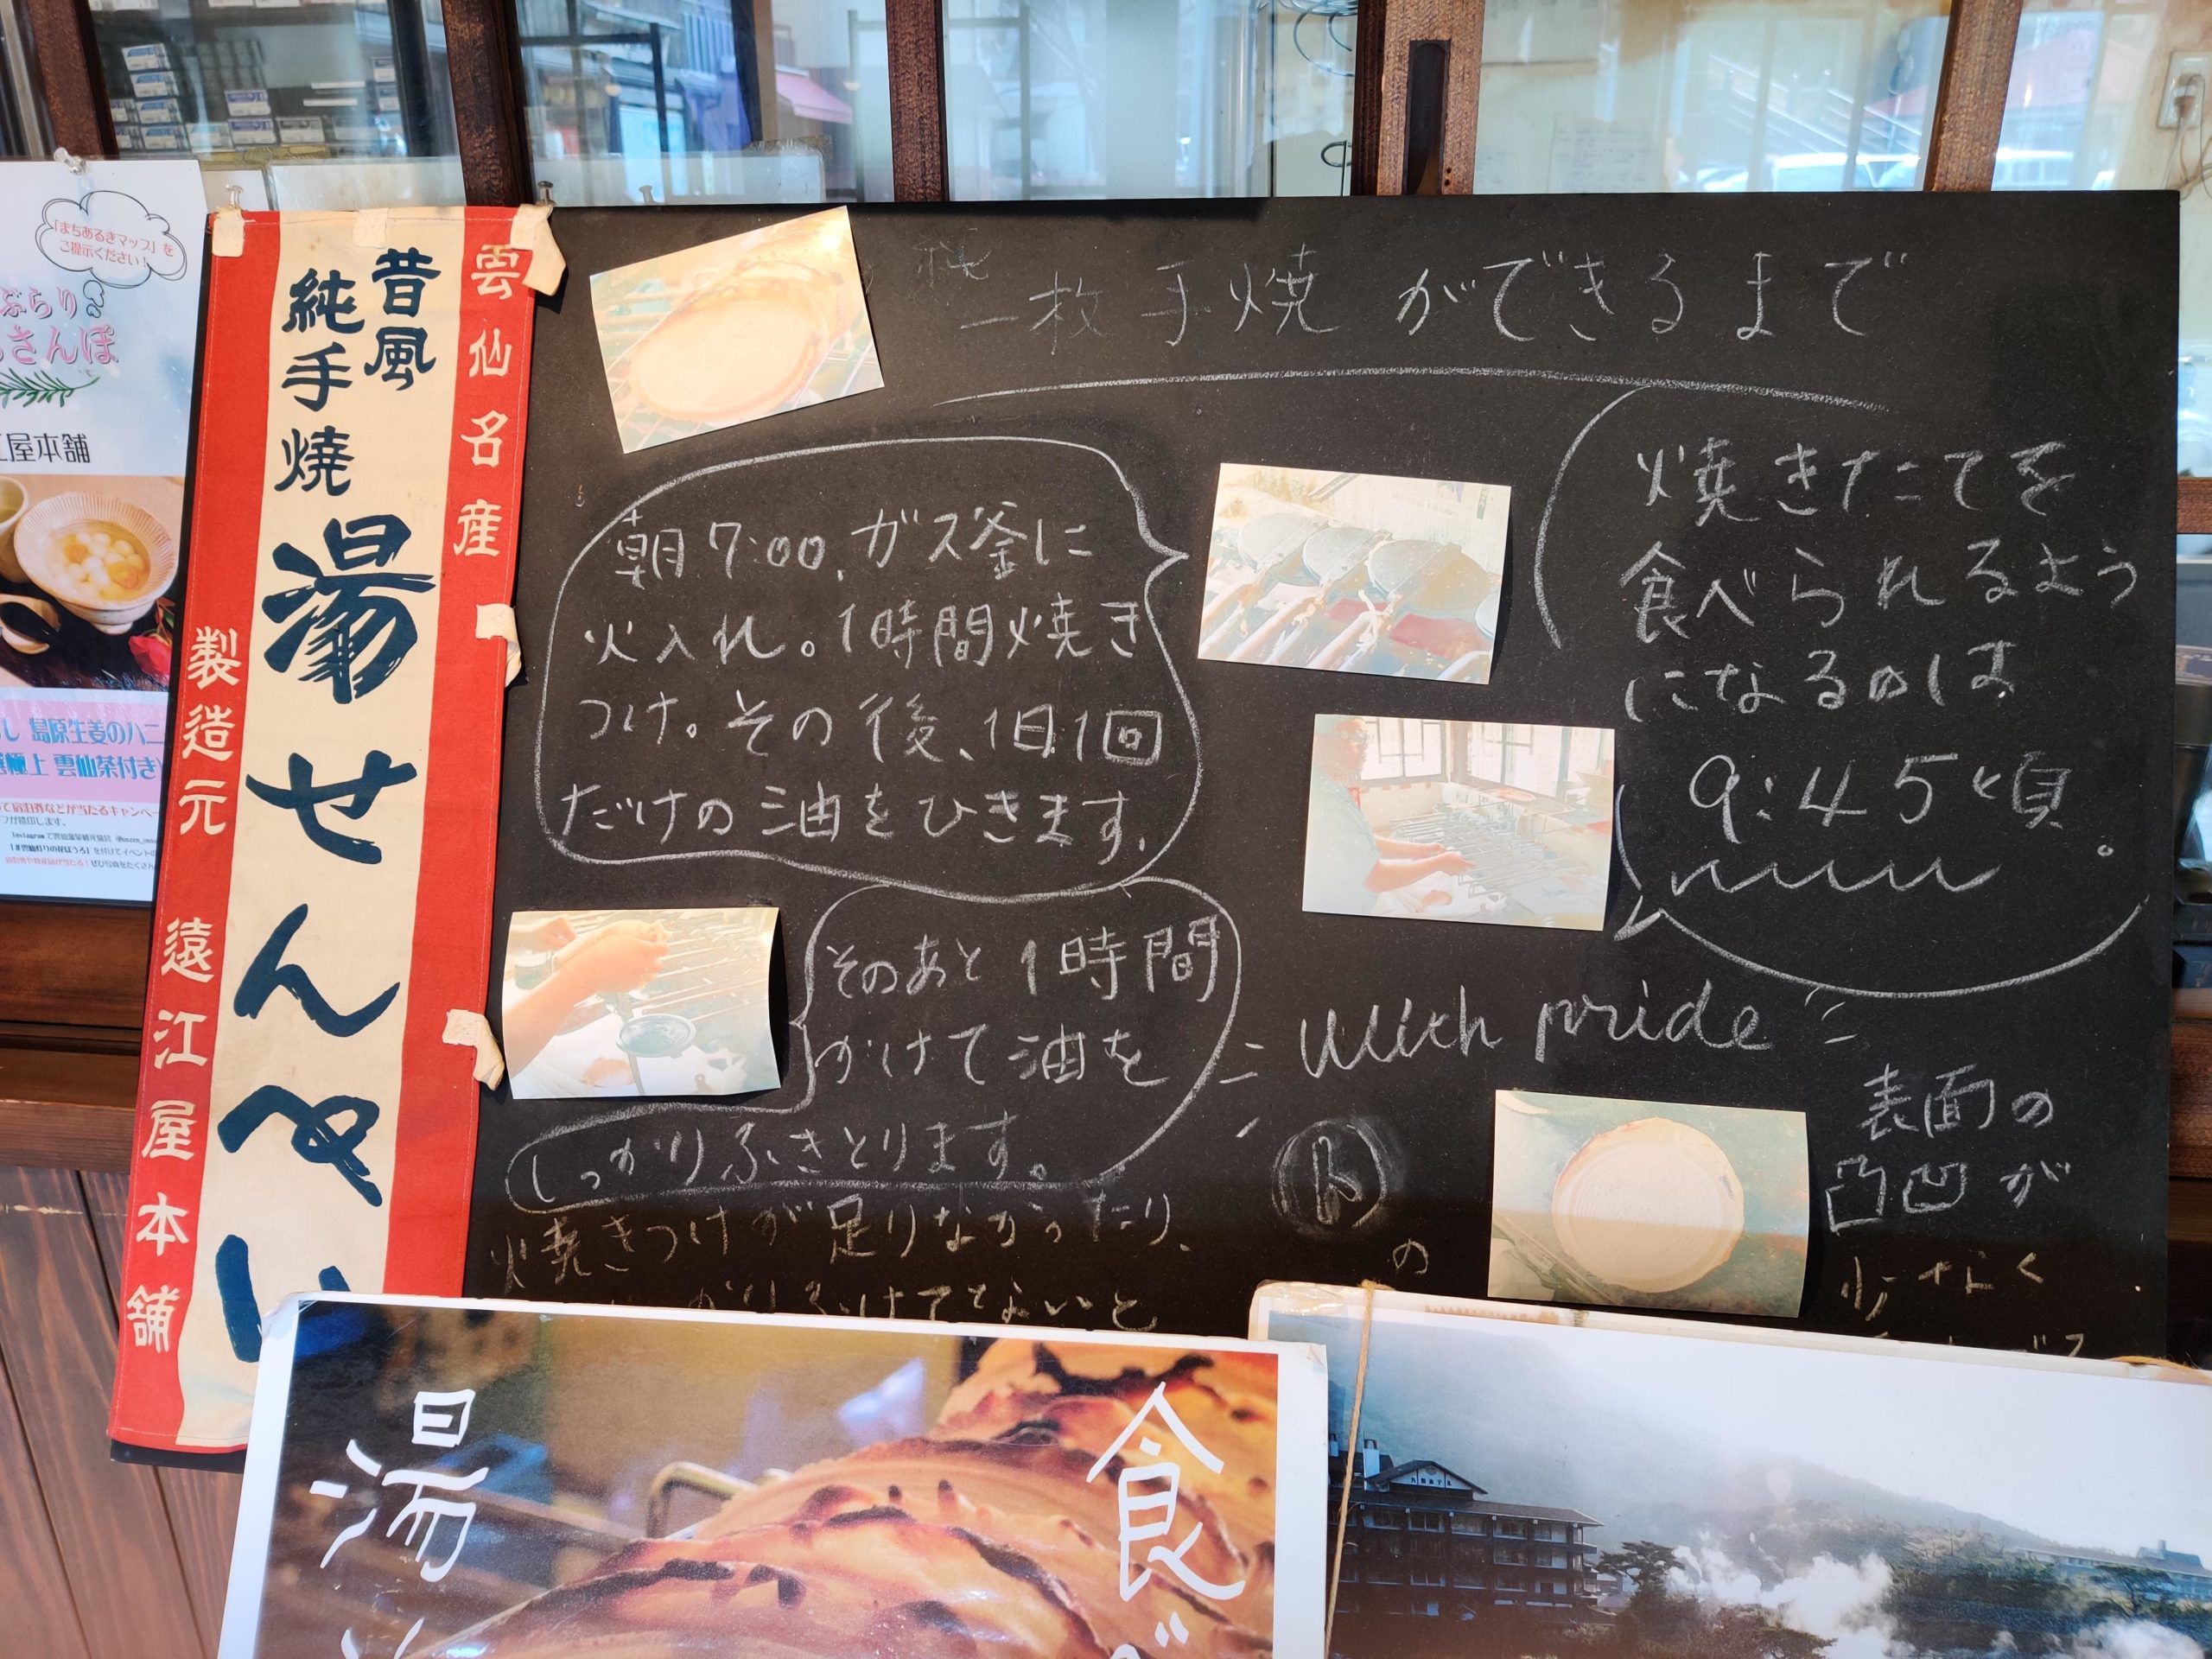 「まちあるきマップ」を
ご提示ください！
ぶらり
さんぽ
江屋本舗
島原生姜のハニ
極上 雲仙茶付き
雲仙名産
昔風
純手焼
湯せんぺい
製造元 遠江屋本舗
一枚手焼ができるまで
朝7:00、ガス釜に
火入れ。1時間焼き
つけ。その後、1日1回
だけの油をひきます。
焼きたてを
食べられるよう
になるのは
9:45頃。
そのあと1時間
かけて油を
しっかりふきとります。
焼きつけが足りなかったり、
with pride
の
表面の
凸凹が
少なく
湯
食べ